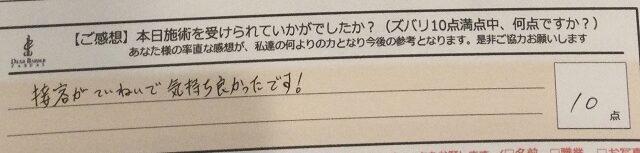 【ご感想】本日施術を受けられていかがでしたか？（ズバリ10点満点中、何点ですか？）
あなた様の率直な感想が、私達の何よりの力となり今後の参考となります。是非ご協力お願いします
接客がていねいで気持ち良かったです!
10
点